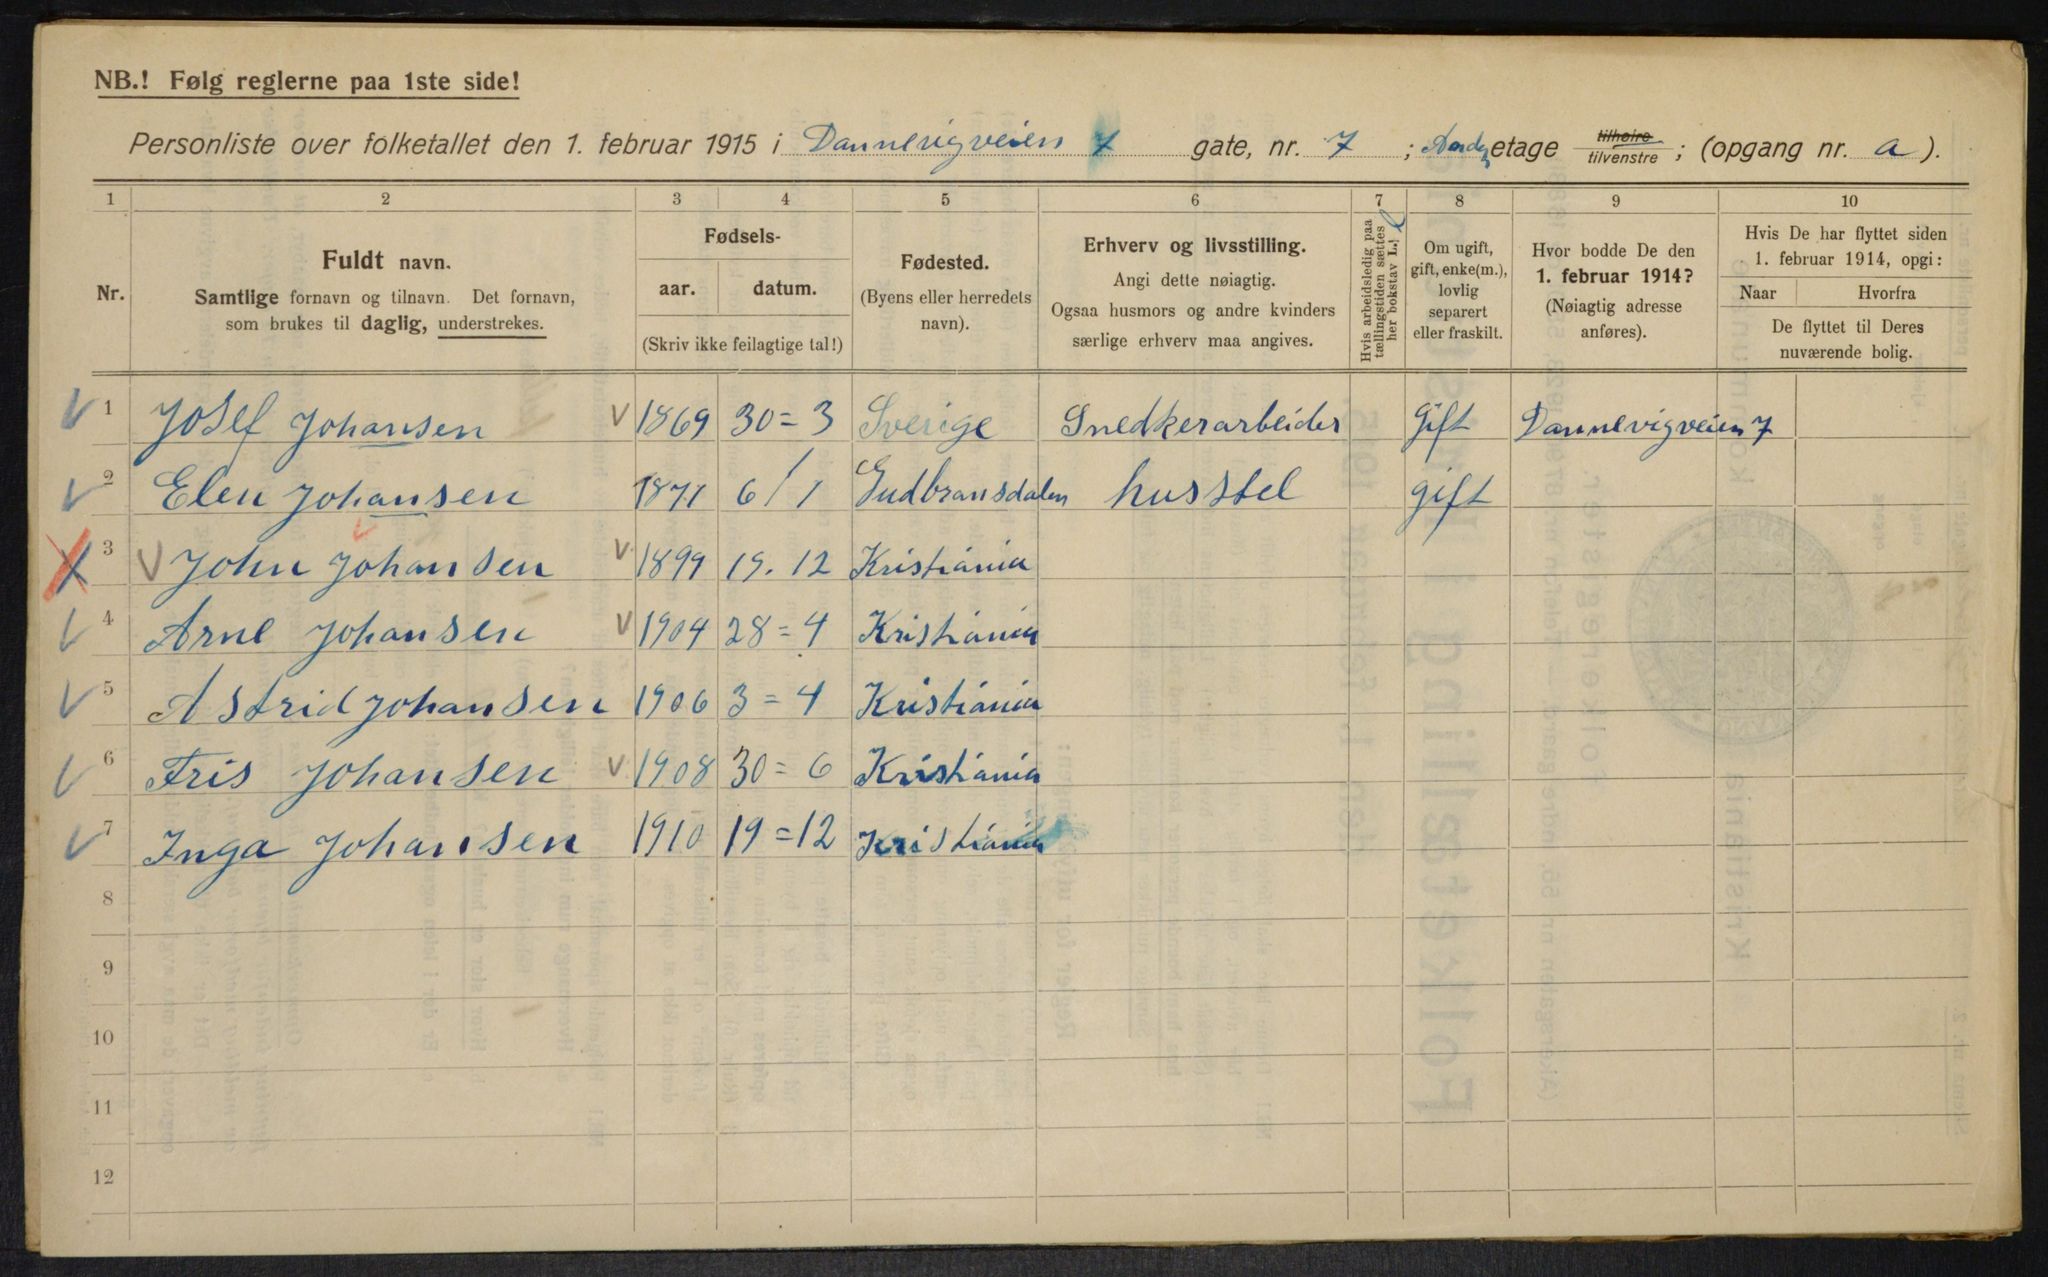 NB.! Følg reglerne paa 1ste side!
Personliste over folketallet den 1. februar 1915 i Dannevigveien 7 gate, nr. 7 ; etage tilhøire / tilvenstre ; (opgang nr. a ).
1 2 3 4 5 6 7 8 9 10
Nr.
Fuldt navn.
Samtlige fornavn og tilnavn. Det fornavn,
som brukes til daglig, understrekes.
Fødsels-
aar. datum.
(Skriv ikke feilagtige tal!)
Fødested.
(Byens eller herredets
navn).
Erhverv og livsstilling.
Angi dette nøiagtig.
Ogsaa husmors og andre kvinders
særlige erhverv maa angives.
Hvis arbeidsledig paa
tællingstiden sættes
her bokstav L.
Om ugift,
gift, enke(m.),
lovlig
separert
eller fraskilt.
Hvor bodde De den
1. februar 1914?
(Nøiagtig adresse
anføres).
Hvis De har flyttet siden
1. februar 1914, opgi:
Naar Hvorfra
De flyttet til Deres
nuværende bolig.
1 Josef Johansen 1869 30=3 Sverige Snedkerarbeider Gift Dannevigveien 7
2 Elen Johansen 1871 6/1 Gudbransdalen husstel gift
3 John Johansen 1899 19.12 Kristiania
4 Arne Johansen 1904 28=4 Kristiania
5 Astrid Johansen 1906 3=4 Kristiania
6 Fris Johansen 1908 30=6 Kristiania
7 Inga Johansen 1910 19=12 Kristiania
8
9
10
11
12